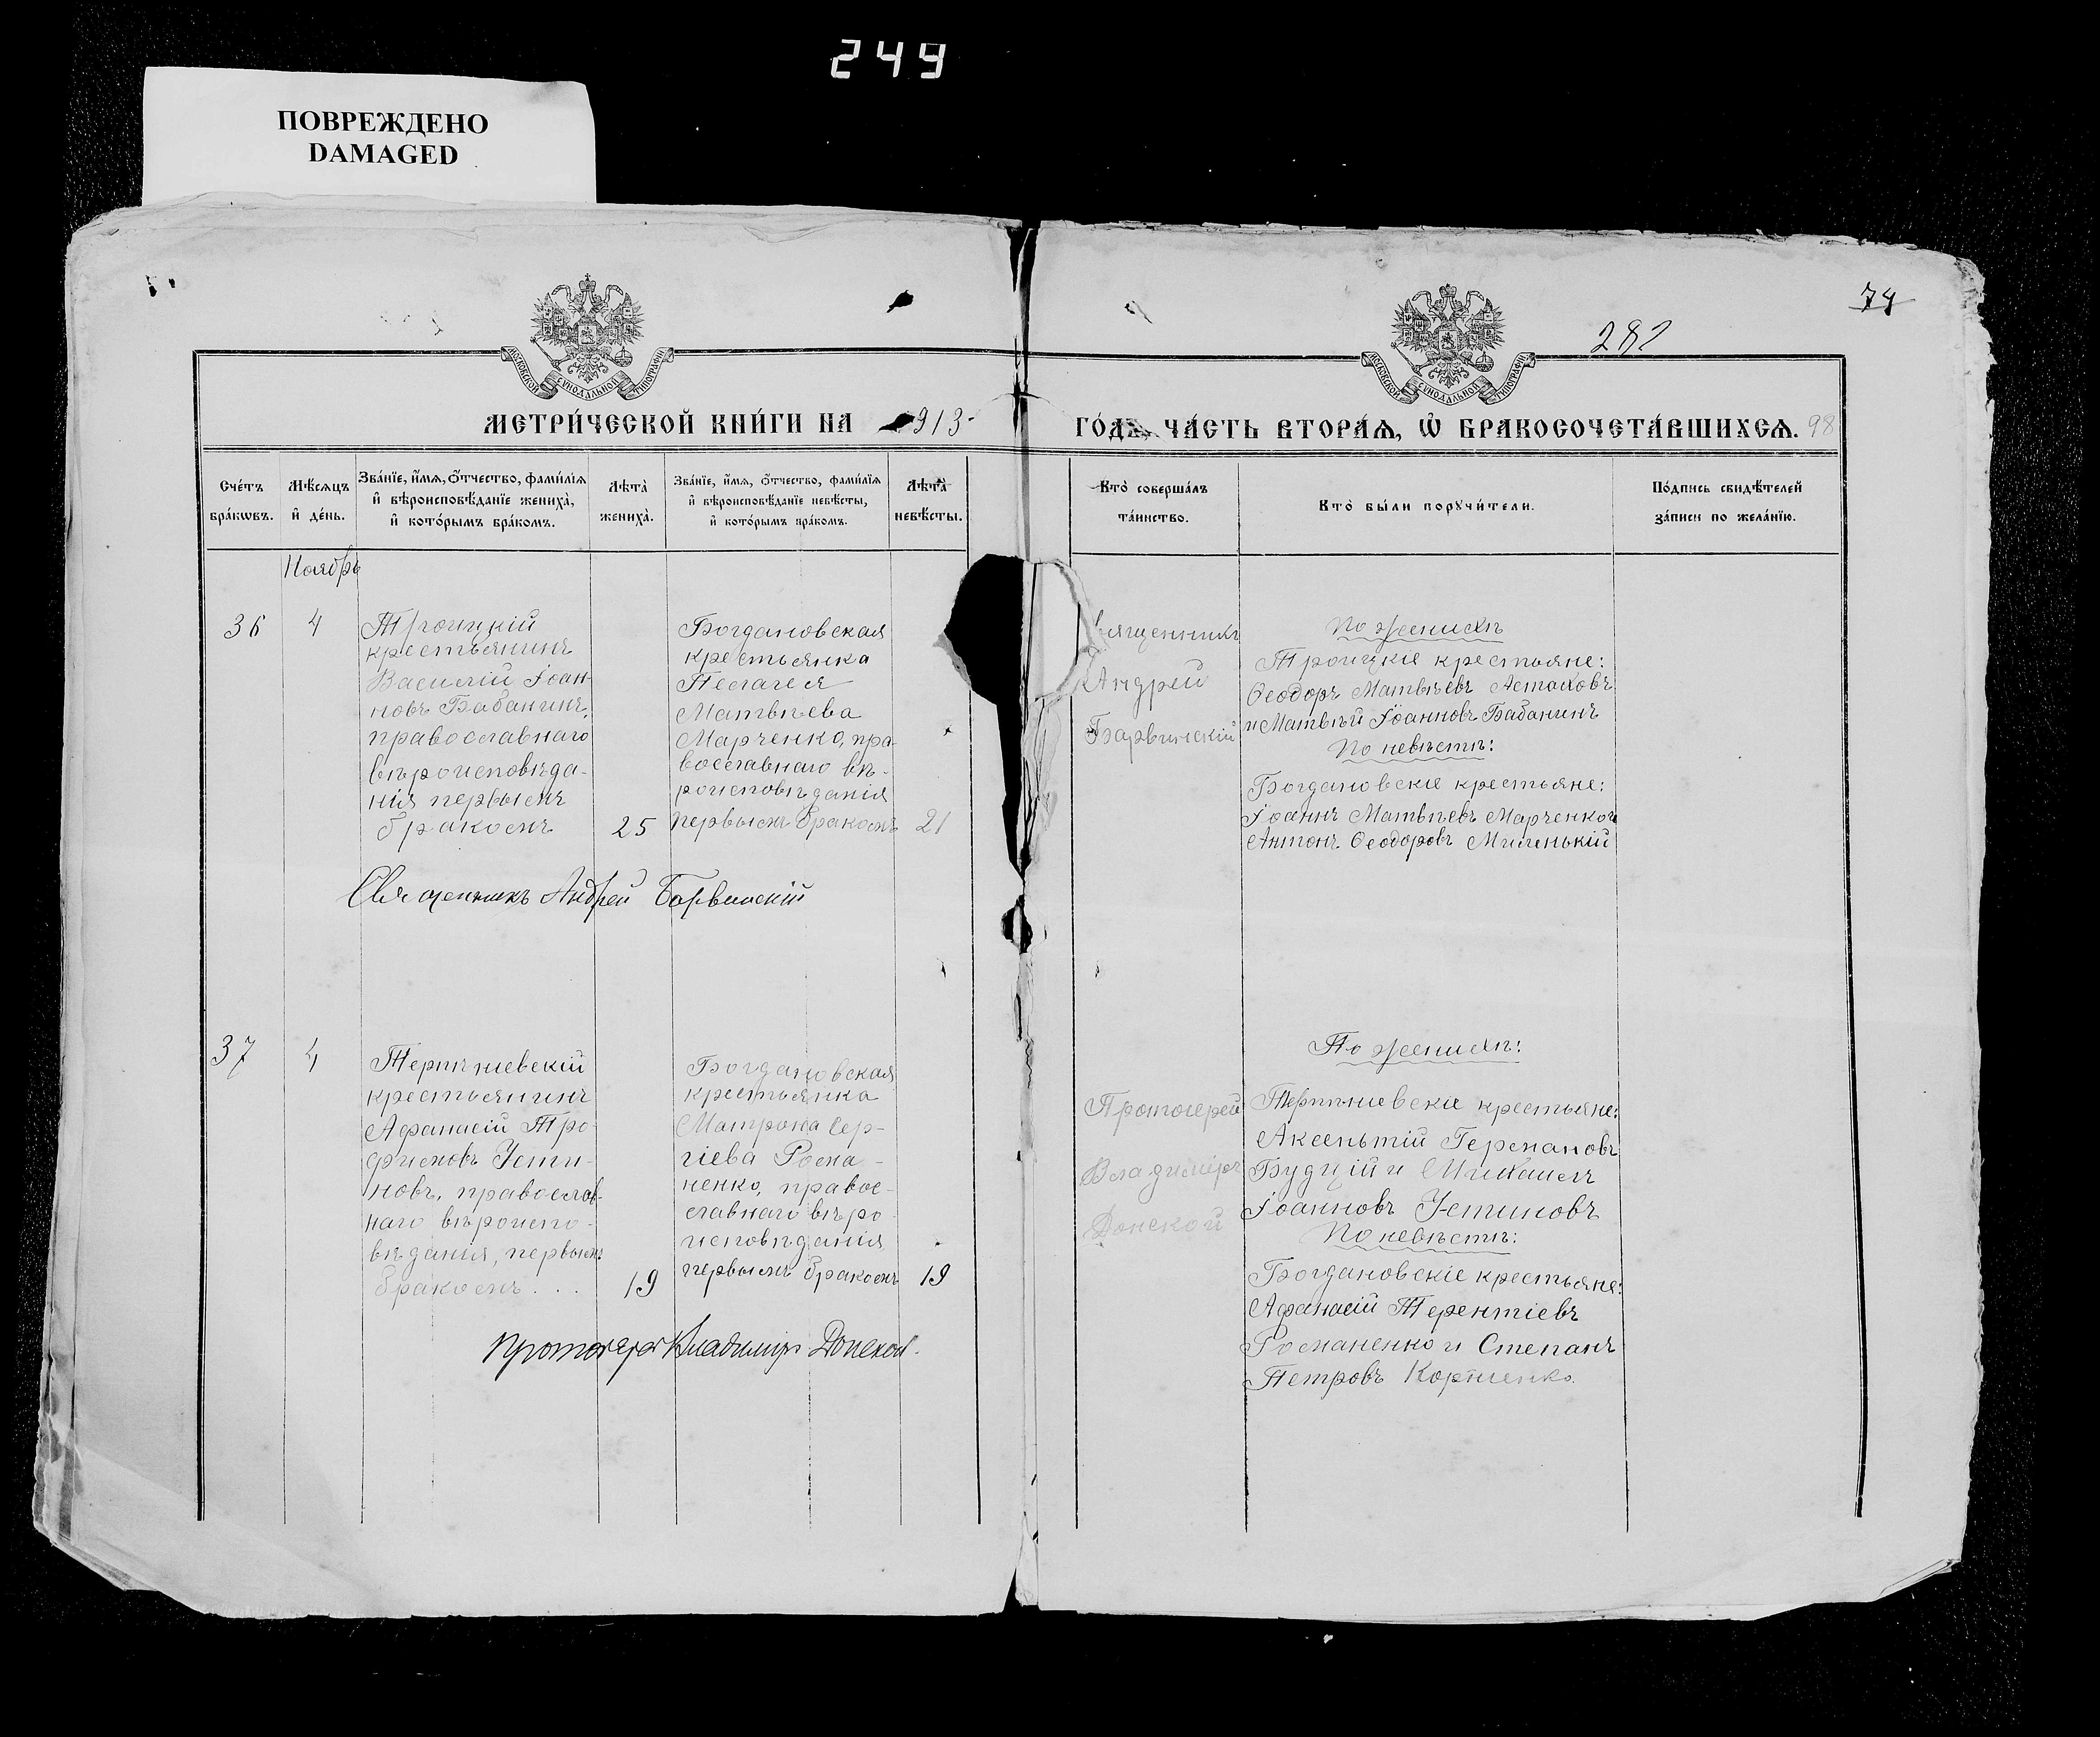 249
ПОВРЕЖДЕНО
DAMAGED
74
282
МОСКОВСКОЙ СѴНОДАЛЬНОЙ ТИПОГРАФІИ
МОСКОВСКОЙ СѴНОДАЛЬНОЙ ТИПОГРАФІИ
МЕТРИ́ЧЕСКОЙ КНИ́ГИ НА 1913
ГО́ДЪ, ЧА́СТЬ ВТОРА́Ѧ, Ѡ҆ БРАКОСОЧЕТА́ВШИХСѦ. 98
Сче́тъ бра́кѡвъ.
Мѣ́сѧцъ и҆ де́нь.
Зва́нїе, и҆́мѧ, ѻ҆́тчество, фами́лїѧ и҆ вѣроисповѣ́данїе жениха̀, и҆ кото́рымъ бра́комъ.
Лѣта̀ жениха̀.
Зва́нїе, и҆́мѧ, ѻ҆́тчество, фами́лїѧ и҆ вѣроисповѣ́данїе невѣ́сты, и҆ кото́рымъ бра́комъ.
Лѣта̀ невѣ́сты.
Кто̀ соверша́лъ та́инство.
Кто̀ бы́ли порꙋчи́тели.
По́дпись свидѣ́телей за́писи по жела́нїю.
Ноябрь
36
4
Троицкій
крестьянинъ
Василій Іоан-
новъ Бабанинъ,
православнаго
вѣроисповѣда-
нія первымъ
бракомъ
25
Богдановская
крестьянка
Пелагея
Матвѣева
Марченко, пра-
вославнаго вѣ-
роисповѣданія
первымъ бракомъ
21
Священникъ
Андрей
Барвинскій
По женихѣ
Троицкіе крестьяне:
Ѳеодоръ Матвѣевъ Астаховъ
и Матвѣй Іоанновъ Бабанинъ
По невѣстѣ:
Богдановскіе крестьяне:
Іоаннъ Матвѣевъ Марченко и
Антонъ Ѳеодоровъ Миленькій
Священникъ Андрей Барвинскій
37
4
Терпѣніевскій
крестьянинъ
Афанасій Тро-
фимовъ Усти-
новъ, православ-
наго вѣроиспо-
вѣданія, первымъ
бракомъ . . .
19
Богдановская
крестьянка
Матрона Сер-
гіева Рома-
ненко, правос-
славнаго вѣро-
исповѣданія
первымъ бракомъ
19
Протоіерей
Владиміръ
Донской
По женихѣ:
Терпѣніевскіе крестьяне:
Аксентій Германовъ
Будцій и Михаилъ
Іоанновъ Устиновъ
По невѣстѣ:
Богдановскіе крестьяне:
Афанасій Терентіевъ
Романенко и Степанъ
Петровъ Корніенко.
Протоіерей Владиміръ Донской.